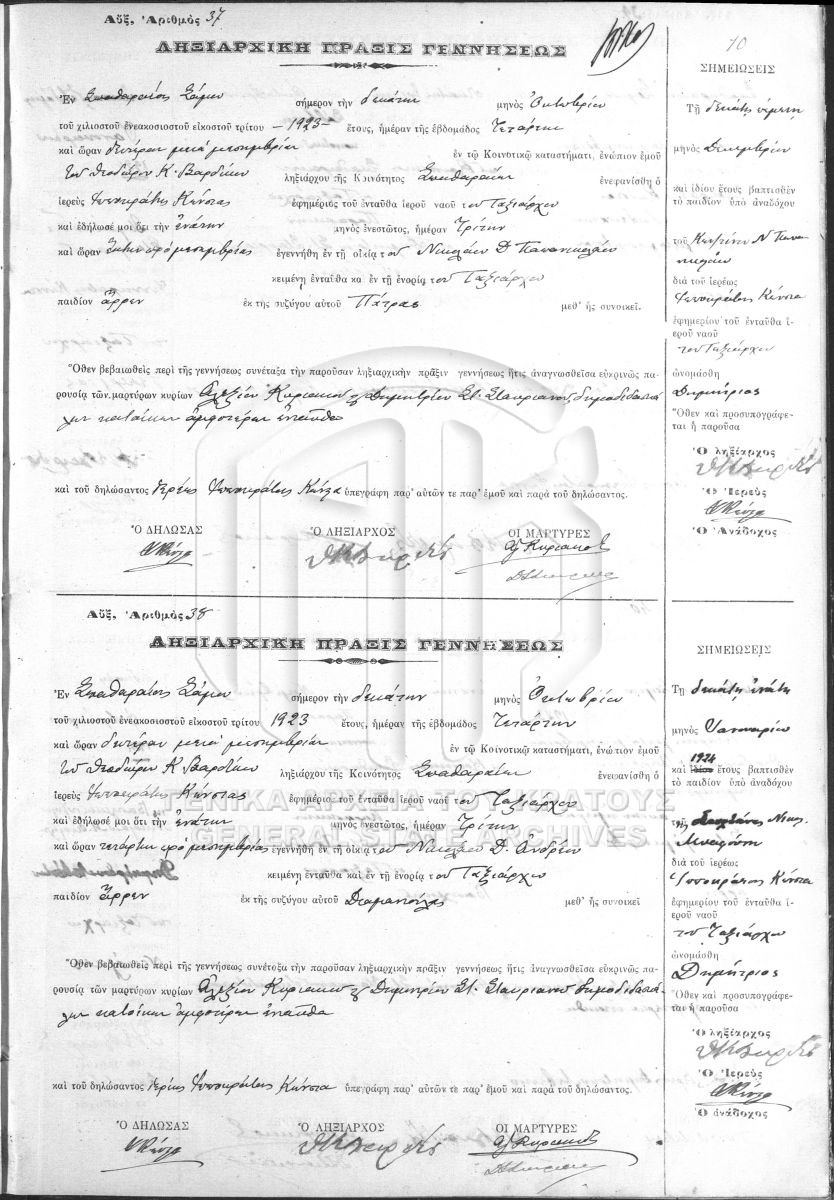 Αὔξ. Ἀριθμὸς 37
10
ΛΗΞΙΑΡΧΙΚΗ ΠΡΑΞΙΣ ΓΕΝΝΗΣΕΩΣ
Ἐν Σπαθαραίοις Σάμου σήμερον τὴν δεκάτην μηνὸς Ὀκτωβρίου
τοῦ χιλιοστοῦ ἐνεακοσιοστοῦ εἰκοστοῦ τρίτου -1923- ἔτους, ἡμέραν τῆς ἑβδομάδος Τετάρτην
καὶ ὥραν δευτέραν μετὰ μεσημβρίαν ἐν τῷ Κοινοτικῷ καταστήματι, ἐνώπιον ἐμοῦ
τοῦ Θεοδώρου Κ. Βαρδίκου ληξιάρχου τῆς Κοινότητος Σπαθαραίων ἐνεφανίσθη ὁ
ἱερεὺς Ἱπποκράτης Κώνστας ἐφημέριος τοῦ ἐνταῦθα ἱεροῦ ναοῦ τοῦ Ταξιάρχου
καὶ ἐδήλωσέ μοι ὅτι τὴν ἐνάτην μηνὸς ἐνεστῶτος, ἡμέραν Τρίτην
καὶ ὥραν ἕκτην πρὸ μεσημβρίας ἐγεννήθη ἐν τῇ οἰκίᾳ τοῦ Νικολάου Δ. Παπανικολάου
κειμένῃ ἐνταῦθα κα ἐν τῇ ἐνορίᾳ τοῦ Ταξιάρχου
παιδίον ἄρρεν ἐκ τῆς συζύγου αὐτοῦ Πάτρας μεθ᾽ ἧς συνοικεῖ.
Ὅθεν βεβαιωθεὶς περὶ τῆς γεννήσεως συνέταξα τὴν παροῦσαν ληξιαρχικὴν πρᾶξιν γεννήσεως ἥτις ἀναγνωσθεῖσα εὐκρινῶς πα-
ρουσίᾳ τῶν μαρτύρων κυρίων Ἀλεξίου Κυριακοῦ Δημητρίου Στ. Σταυριανοῦ δημοδιδασκά
λων κατοίκων ἀμφοτέρων ἐνταῦθα
καὶ τοῦ δηλώσαντος ἱερέως Ἱπποκράτους Κώνστα ὑπεγράφη παρ᾽ αὐτῶν τε παρ᾽ ἐμοῦ καὶ παρὰ τοῦ δηλώσαντος.
Ὁ ΔΗΛΩΣΑΣ Ὁ ΛΗΞΙΑΡΧΟΣ ΟΙ ΜΑΡΤΥΡΕΣ
ΣΗΜΕΙΩΣΕΙΣ
Τῇ δεκάτῃ πέμπτῃ
μηνὸς Δεκεμβρίου
καὶ ἰδίου ἔτους βαπτισθὲν
τὸ παιδίον ὑπὸ ἀναδόχου
τοῦ Κωνσταντίνου Ν Παπα
νικολάου
διὰ τοῦ ἱερέως
Ἱπποκράτους Κώνστα
ἐφημερίου τοῦ ἐνταῦθα ἱ-
εροῦ ναοῦ
τοῦ Ταξιάρχου
ὠνομάσθη
Δημήτριος
Ὅθεν καὶ προσυπογράφε-
ται ἡ παροῦσα
Ὁ ληξίαρχος
Ὁ Ἱερεὺς
Ὁ Ἀνάδοχος
Αὔξ. Ἀριθμὸς 38
ΛΗΞΙΑΡΧΙΚΗ ΠΡΑΞΙΣ ΓΕΝΝΗΣΕΩΣ
Ἐν Σπαθαραίοις Σάμου σήμερον τὴν δεκάτην μηνὸς Ὀκτωβρίου
τοῦ χιλιοστοῦ ἐνεακοσιοστοῦ εἰκοστοῦ τρίτου 1923 ἔτους, ἡμέραν τῆς ἑβδομάδος Τετάρτην
καὶ ὥραν δευτέραν μετὰ μεσημβρίαν ἐν τῷ Κοινοτικῷ καταστήματι, ἐνώπιον ἐμοῦ
τοῦ Θεοδώρου Κ. Βαρδίκου ληξιάρχου τῆς Κοινότητος Σπαθαραίων ἐνεφανίσθη ὁ
ἱερεὺς Ἱπποκράτης Κώνστας ἐφημέριος τοῦ ἐνταῦθα ἱεροῦ ναοῦ τοῦ Ταξιάρχου
καὶ ἐδήλωσέ μοι ὅτι τὴν ἐνάτην μηνὸς ἐνεστῶτος, ἡμέραν Τρίτην
καὶ ὥραν τετάρτην πρὸ μεσημβρίας ἐγεννήθη ἐν τῇ οἰκίᾳ τοῦ Νικολάου Δ. Ἀνδρέου
κειμένῃ ἐνταῦθα καὶ ἐν τῇ ἐνορίᾳ τοῦ Ταξιάρχου
παιδίον ἄρρεν ἐκ τῆς συζύγου αὐτοῦ Διαμαντούλας μεθ᾽ ἧς συνοικεῖ
Ὅθεν βεβαιωθεὶς περὶ τῆς γεννήσεως συνέταξα τὴν παροῦσαν ληξιαρχικὴν πρᾶξιν γεννήσεως ἥτις ἀναγνωσθεῖσα εὐκρινῶς πα-
ρουσίᾳ τῶν μαρτύρων κυρίων Ἀλεξίου Κυριακοῦ Δημητρίου Στ. Σταυριανοῦ δημοδιδασκά
λων κατοίκων ἀμφοτέρων ἐνταῦθα
καὶ τοῦ δηλώσαντος ἱερέως Ἱπποκράτους Κώνστα ὑπεγράφη παρ᾽ αὐτῶν τε παρ᾽ ἐμοῦ καὶ παρὰ τοῦ δηλώσαντος.
Ὁ ΔΗΛΩΣΑΣ Ὁ ΛΗΞΙΑΡΧΟΣ ΟΙ ΜΑΡΤΥΡΕΣ
ΣΗΜΕΙΩΣΕΙΣ
Τῇ δεκάτῃ ἐνάτῃ
μηνὸς Ἰανουαρίου
καὶ 1924 ἔτους βαπτισθὲν
τὸ παιδίον ὑπὸ ἀναδόχου
Νικο.
διὰ τοῦ ἱερέως
Ἱπποκράτους Κώνστα
ἐφημερίου τοῦ ἐνταῦθα
ἱεροῦ ναοῦ
τοῦ Ταξιάρχου
ὠνομάσθη
Δημήτριος
Ὅθεν καὶ προσυπογράφε-
ται ἡ παροῦσα
Ὁ ληξίαρχος
Ὁ Ἱερεὺς
Ὁ ἀνάδοχος
ΓΕΝΙΚΑ ΑΡΧΕΙΑ ΤΟΥ ΚΡΑΤΟΥΣ
GENERAL STATE ARCHIVES